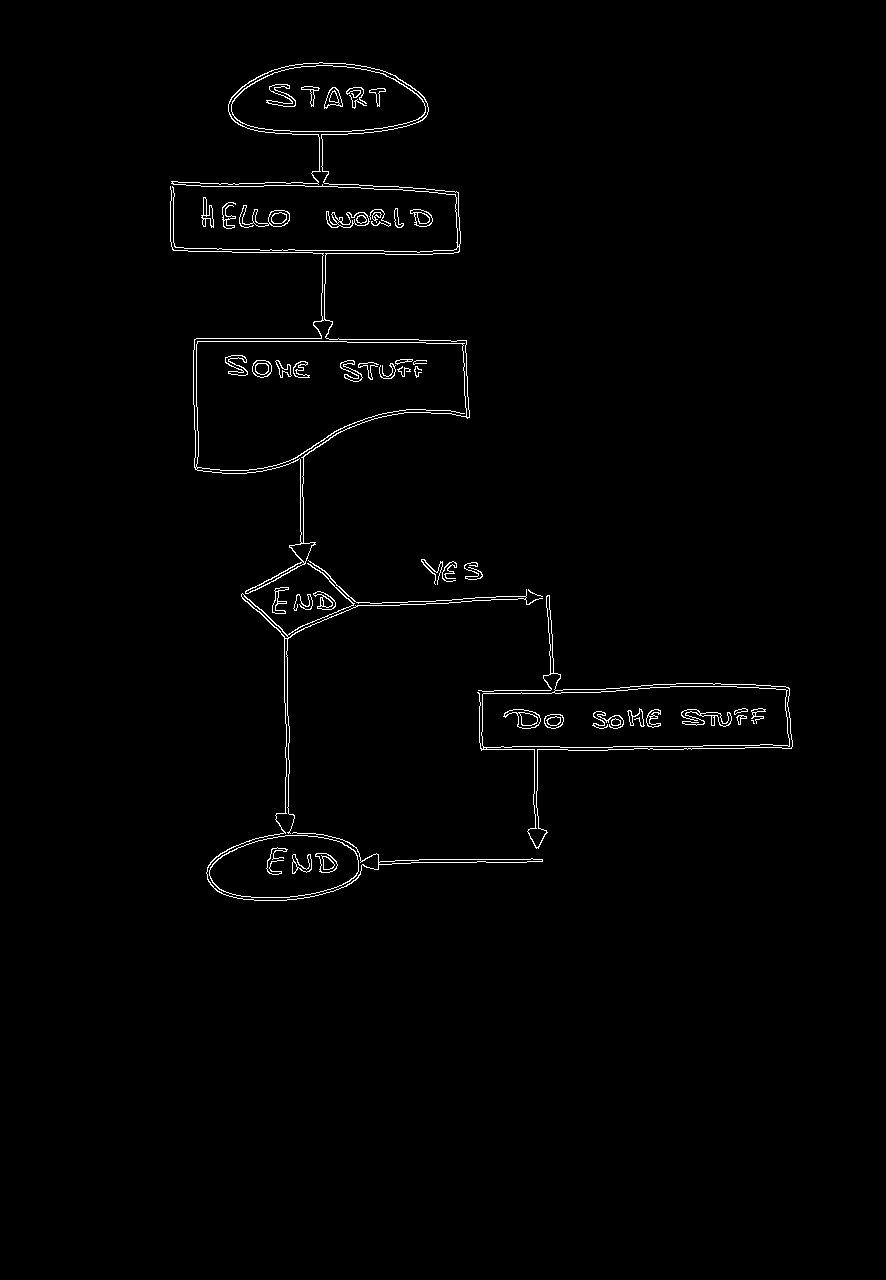 START
HELLO WORLD
SOME STUFF
YES
END
DO SOME STUFF
END